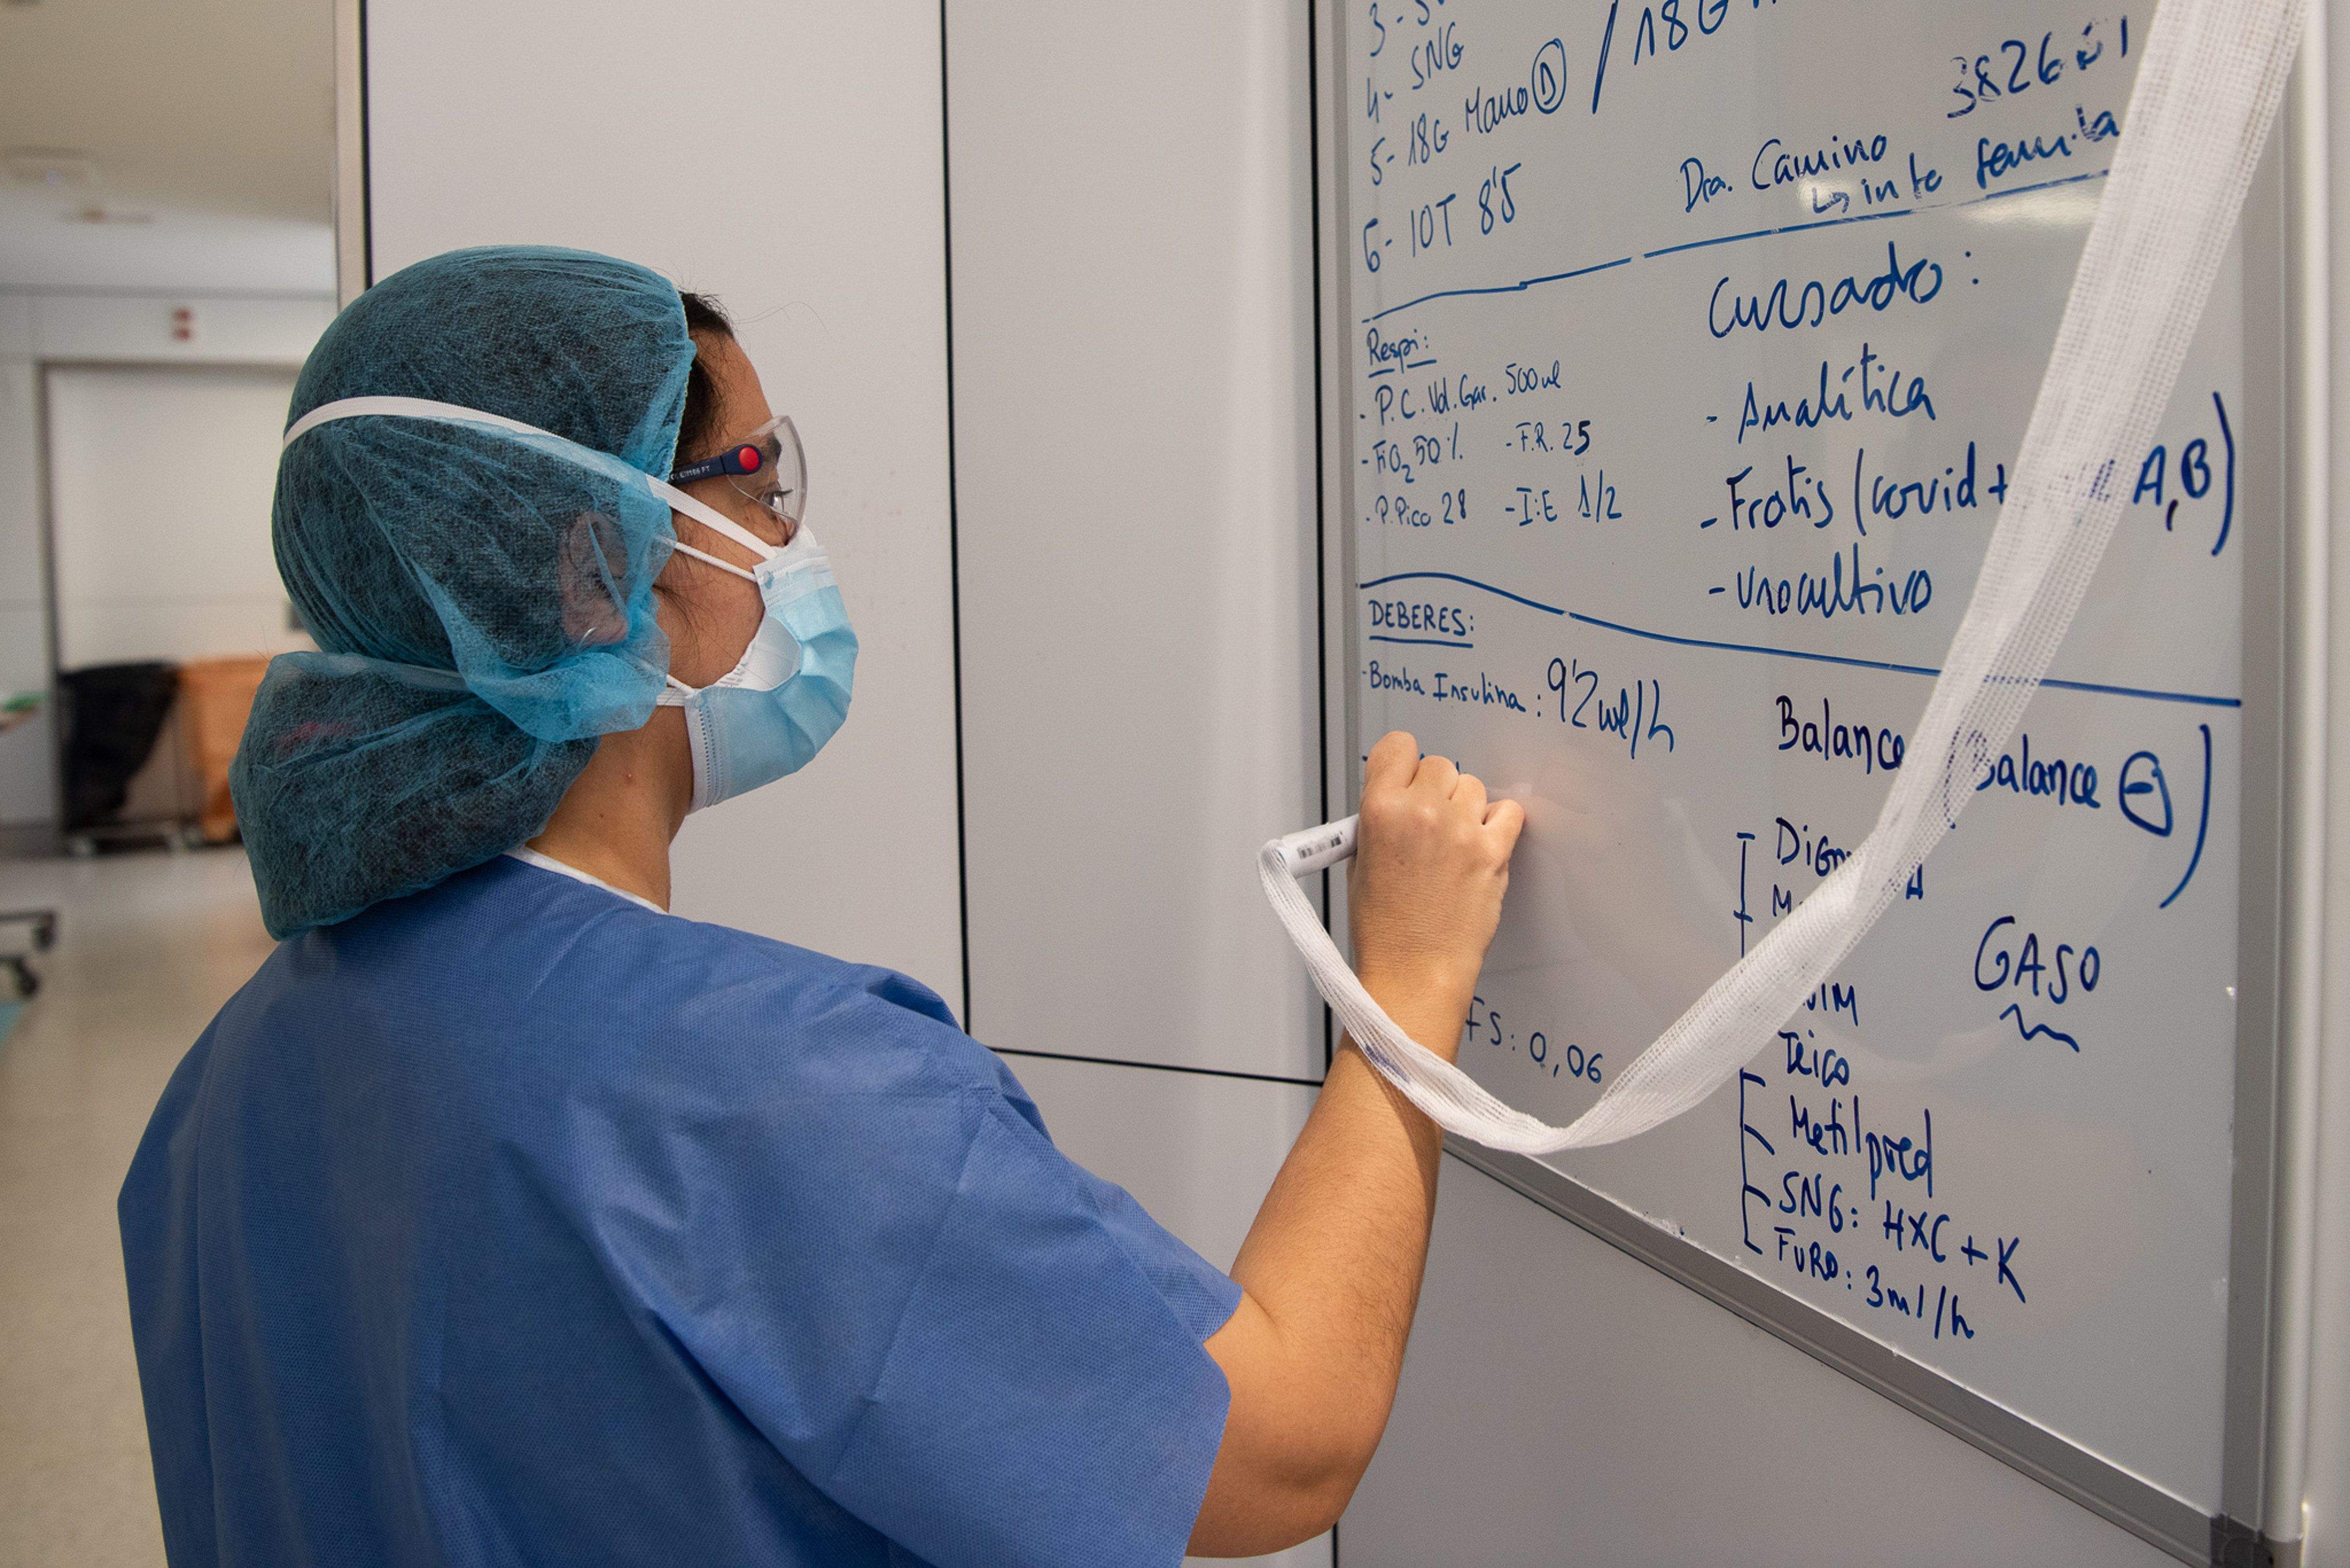 4- SNG
5- 18G Mano D / 18G
6- IOT 8'5
Dra. Camino
Respi:
- P.C. Vol. Gar. 500ml
- FiO2 50% - F.R. 25
- P. Pico 28 - I:E 1/2
Cursado:
- Analítica
- Frotis (covid + A, B)
- Urocultivo
DEBERES:
- Bomba Insulina: 9'2 ml/h
FS: 0,06
Balance (Balance ⊖)
GASO
Teico
Metilpred
SNG: HXC + K
FURO: 3ml/h